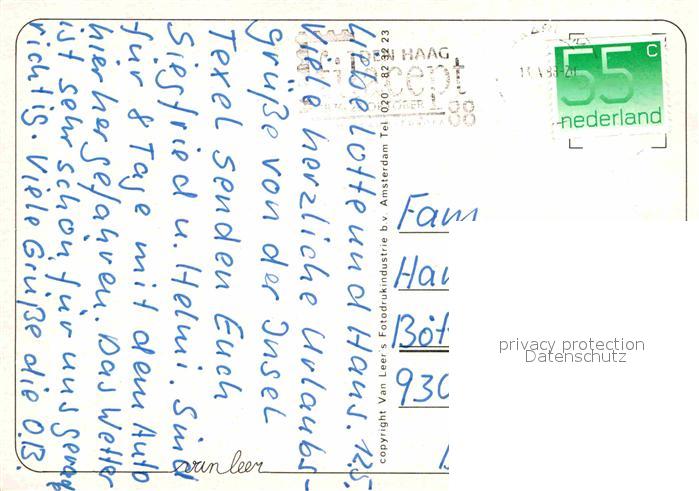 Liebe Lotte und Hans. 12.5.
Viele herzliche Urlaubs-
grüße von der Insel
Texel senden Euch
Siegfried u. Helmi. Sind
für 8 Tage mit dem Auto
hierher gefahren. Das Wetter
ist sehr schön, für uns gerade
richtig. Viele Grüße die O.B.
van leer
copyright Van Leer's Fotodrukindustrie b.v. Amsterdam Tel. 020 - 82 32 23
DEN HAAG
55 c
nederland
Fam
Han
Böt
930
privacy protection
Datenschutz